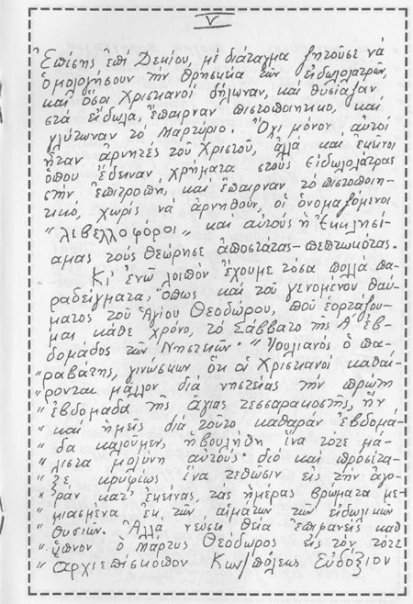 V
Ἐπίσης ἐπὶ Δεκίου, μὲ διάταγμα ζητοῦσε νὰ
ὁμολογήσουν τὴν θρησκεία τῶν εἰδωλολατρῶν,
καὶ ὅσοι Χριστιανοὶ δήλωναν, καὶ θυσίαζαν
στὰ εἴδωλα, ἔπαιρναν πιστοποιητικό, καὶ
γλύτωναν τὸ Μαρτύριο. Ὄχι μόνον αὐτοὶ
ἦταν ἀρνητές τοῦ Χριστοῦ, ἀλλὰ καὶ ἐκεῖνοι
ὅπου ἔδειναν χρήματα στοὺς εἰδωλολάτρας
στὴν ἐπιτροπὴ, καὶ ἔπαιρναν τὸ πιστοποιη-
τικό, χωρὶς νὰ ἀρνηθοῦν, οἱ ὀνομαζόμενοι
"λιβελλοφόροι" καὶ αὐτοὺς ἡ Ἐκκλησί-
α μας τοὺς θεώρησε ἀποστάτας - πεπτωκότας.
Κι' ἐνῶ λοιπὸν ἔχουμε τόσα πολλὰ πα-
ραδείγματα, ὅπως καὶ τοῦ γενομένου θαύ-
ματος τοῦ Ἁγίου Θεοδώρου, ποῦ ἑορτάζου-
μαι κάθε χρόνο, τὸ Σάββατο τῆς Α' ἑβ-
δομάδος τῶν Νηστειῶν. "Ἰουλιανὸς ὁ πα-
ραβάτης, γινώσκων ὅτι οἱ Χριστιανοὶ καθαί-
ρονται μᾶλλον διὰ νηστείας τὴν πρώτη
" ἑβδομάδα τῆς ἁγίας τεσσαρακοστῆς, ἣν
" καὶ ἡμεῖς διὰ τοῦτο καθαρὰν ἑβδομά-
" δα καλοῦμεν, ἠβουλήθη ἵνα τότε μά-
" λιστα μολύνη αὐτούς· διὸ καὶ προσέτα-
" ξε κρυφίως ἵνα τεθῶσιν εἰς τὴν ἀγο-
" ρὰν κατ' ἐκείνας, τὰς ἡμέρας βρώματα με-
" μιασμένα ἐκ τῶν αἱμάτων τῶν εἰδωλικῶν
" θυσιῶν. Ἀλλὰ νεύσει θεία ἐπιφανεὶς καθ'
" ὕπνον ὁ Μάρτυς Θεόδωρος εἰς τὸν τότε
" Ἀρχιεπίσκοπον Κων/πόλεως Εὐδόξιον